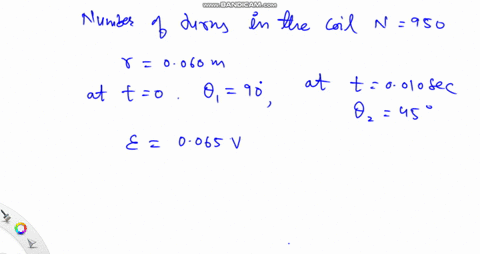 www.BANDICAM.com
Number of turns in the coil N = 950
r = 0.060 m
at t = 0 . θ₁ = 90°, at t = 0.010 sec
θ₂ = 45°
ε = 0.065 V